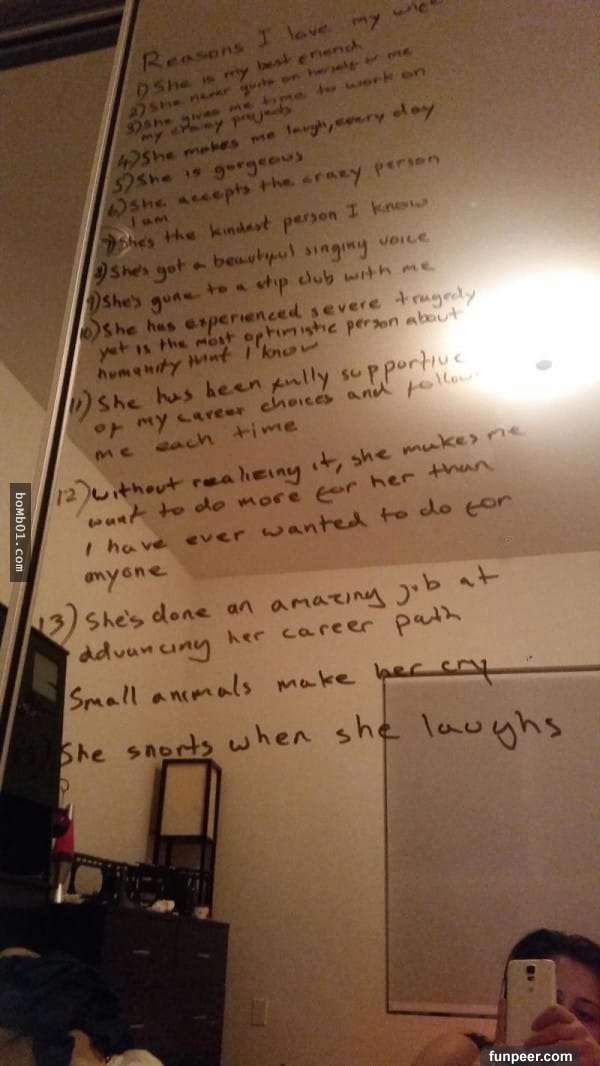 Reasons I love my wife
1) She is my best friend
2) She never quits on herself or me
3) She gives me time to work on
my crazy projects
4) She makes me laugh, every day
5) She is gorgeous
6) She accepts the crazy person
I am
7) She's the kindest person I know
8) She's got a beautiful singing voice
9) She's gone to a stip club with me
10) She has experienced severe tragedy
yet is the most optimistic person about
humanity that I know
11) She has been fully supportive
of my career choices and follow
me each time
12) Without realizing it, she makes me
want to do more for her than
I have ever wanted to do for
anyone
13) She's done an amazing job at
advancing her career path
Small animals make her cry
She snorts when she laughs
boMb01.com
funpeer.com